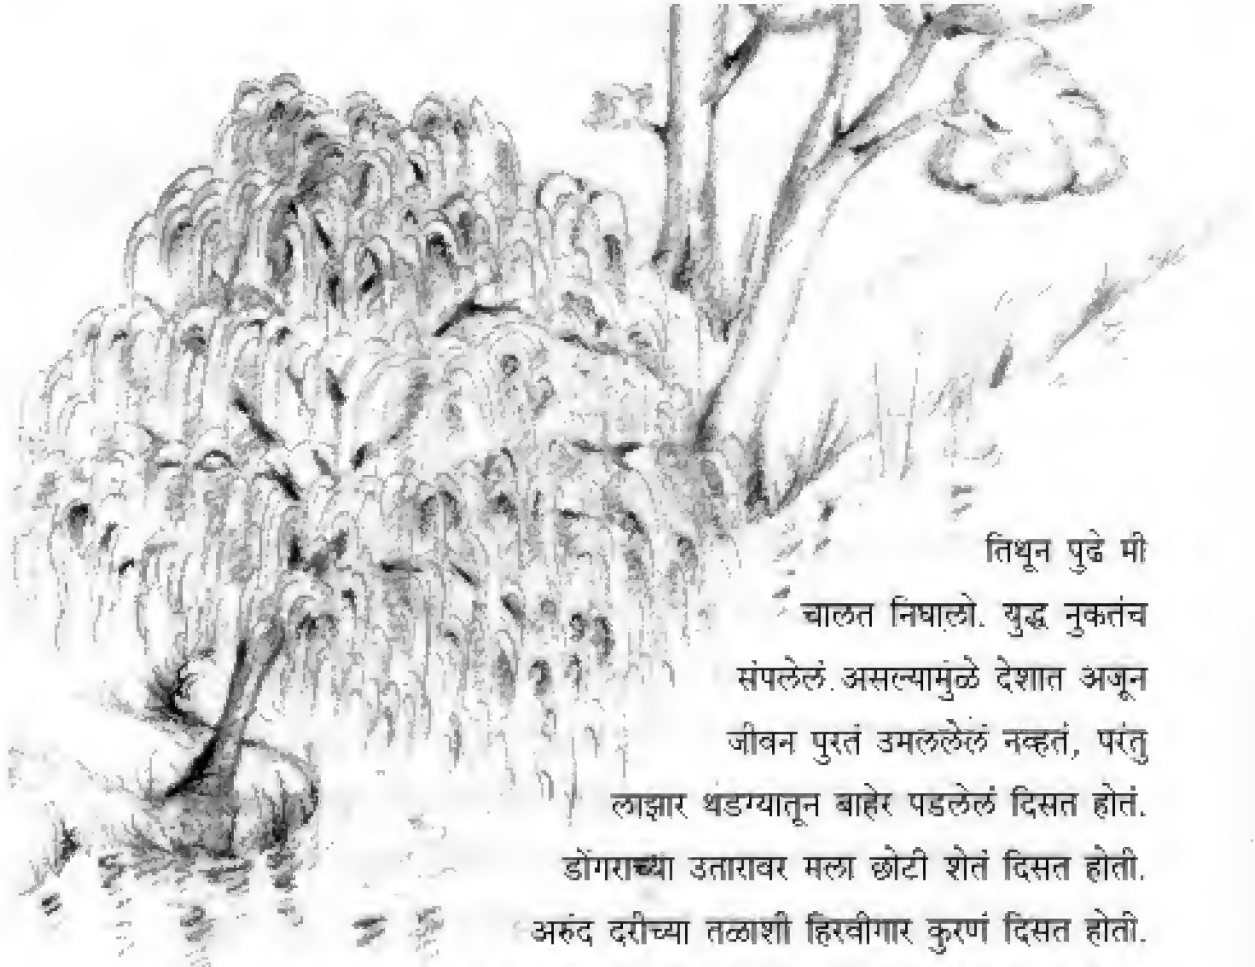 तिथून पुढे मी
चालत निघालो. युद्ध नुकतंच
संपलेलं असल्यामुळे देशात अजून
जीवन पुरतं उमललेलं नव्हतं, परंतु
लाझार थडग्यातून बाहेर पडलेलं दिसत होतं.
डोंगराच्या उतारावर मला छोटी शेतं दिसत होती.
अरुंद दरीच्या तळाशी हिरवीगार कुरणं दिसत होती.